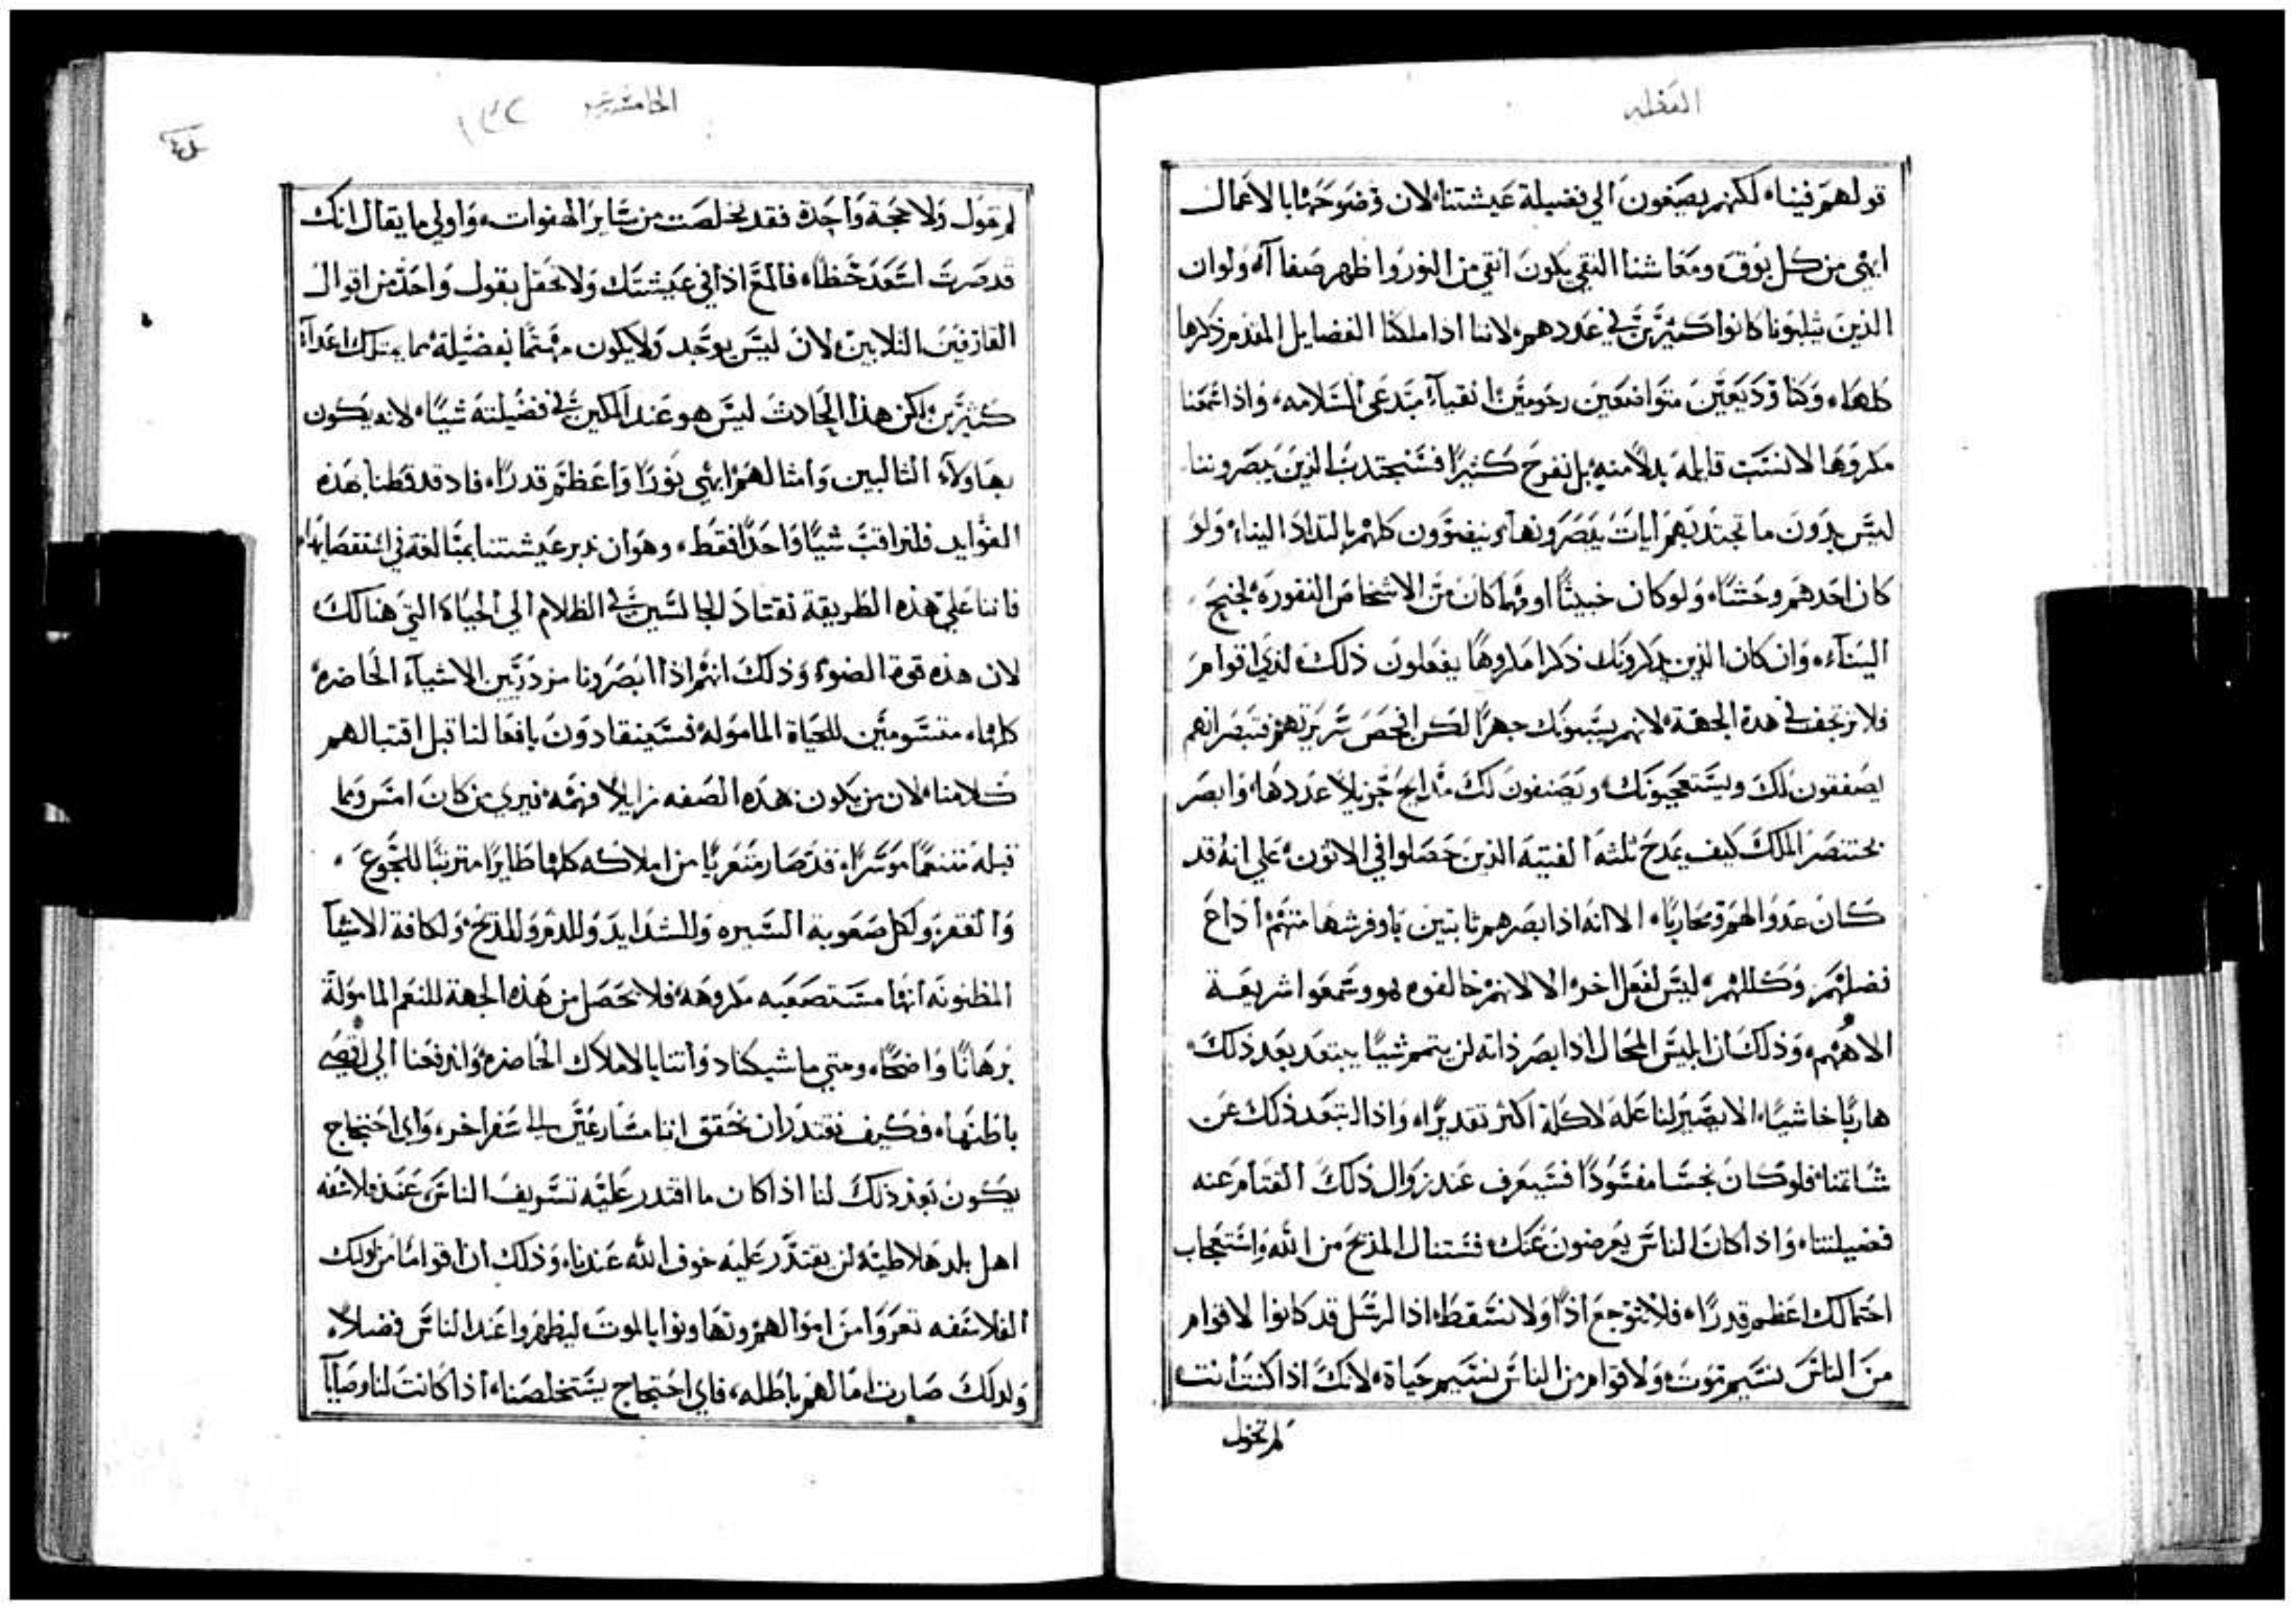 العظه
قولهم فيناء لكنهم يصغون الي فضيلة عيشتناء لان وضوحها بالاعمال
ابهي من كل بوق ومعاشنا النقي يكون انقي من النور واظهر صفاآء ولوان
الذين يثلبونا كانوا كثيرين في عددهمء لاننا اذا ملكنا الفضايل المقدم ذكرها
كلهاء وكنا وديعين متواضعين رحومين انقيآء مبتدعي السلامهء واذا شمعنا
مكروها لا نشتت قابله بدلا منهء بل نفرح كثيرا فسنجتدب الذين يبصروننا
ليس بدون ما تجتدبهم ايات يبصرونهاء وينضوون كلهم بالتداد اليناء ولو
كان احدهم وحشاء ولو كان خبيثا او مهما كان من الاشخاص النفورهء لجنح
اليناءء وان كان الذين يذكرونك ذكرا مكروها يفعلون ذلك لدي اقوام
فلا ترتجف في هده الجهةء لانهم يسبونك جهرا لكن افحص سريرتهم فتبصرانهم
يصفقون لك ويستعجبونكء ويصنفون لك مدايح جزيلا عددهاء وابصر
بختنصر الملك كيف يمدح ثلثة الفتيه الذين حصلوا في الاتونء علي انه قد
كان عدوا لهم ومحارباء الا انه اذ ابصرهم ثابتين باوفر شهامتهم اداع
فضلهم وكللهمء ليس لفعل اخرء الا لانهم خالفوه هو وسمعوا شريعة
الاههمء وذلك ان ابليس المحال اذا ابصر ذاته لن يتمم شيا يبتعد بعد ذلكء
هاربا خاشياء الا يصير لنا علة لاكلة اكثر تقديراء واذا ابتعد ذلك عن
شاتمناء فلو كان نجسا مفسودا فسيعرف عند زوال ذلك القتام عنه
فضيلتناء واذا كان الناس يعرضون عنكء فستنال المديح من الله واستعجاب
احتمالك اعظم قدراء فلا توجع اذا ولا تسقطء اذ الرسل قد كانوا لاقوام
من الناس نسيم موتء ولاقوام من الناس نسيم حياةء لانك اذا كنت انت
لم تخول
الخامسه
١٤٢
لم تقول ولا حجة واحدة فقد تخلصت من ساير الهفواتء واولي ما يقال انك
قد صرت اسعد حظاء فالمع اذا في عيشتك ولا تحفل بقول واحد من اقوال
القازفين الثلابينء لان ليس يوجد ولا يكون مهتما بفضيلة مما يمتلك اعداآء
كثيرينء لكن هذا الحادث ليس هو عند المكين في فضيلته شياء لانه يكون
بهاولاء الثالبين وامثالهم ابهي نورا واعظم قدراء فاد قد فطنا بهذه
الفوايد فلنراقب شيا واحدا فقطء وهو ان ندبر عيشتنا بمبالغة في استقصايها
فاننا علي هذه الطريقة نقتاد الجالسين في الظلام الي الحياة التي هنالك
لان هذه قوة الضوءء وذلك انهم اذا ابصرونا مزدرين الاشياء الحاضرهء
كلهاء متسومين للحياة المامولهء فسينقادون بافعالنا قبل اقتبالهم
كلامناء لان من يكون بهذه الصفه زايلا فهمهء فيري من كان امس وما
قبله متنعما موسراء قد صار متعريا من املاكه كلها طايرا مترتبا للجوعء
والفقر ولكل صعوبة السيره وللشدايد وللدم وللذبح ولكافة الاشيآ
المظنونه انها مستصعبه مكروههء فلا نحصل من هذه الجهة للنعم المامولة
برهانا واضحاء ومتي ما شبكنا دواتنا بالاملاك الحاضره واندفعنا الي اقصي
باطنهاء فكيف نقتدران نحقق اننا مسارعين الي سفر اخرء واي احتجاج
يكون بعد ذلك لنا اذا كان ما اقتدر عليه تسويف الناس عند فلاسفه
اهل بلد هلاطيه لن يقتدر عليه خوف الله عندناء وذلك ان اقواما من اولئك
الفلاسفه تعروا من اموالهم وتهاونوا بالموت ليظهروا عند الناس فضلاء
ولدلك صارت امالهم باطلهء فاي احتجاج يستخلصناء اذا كانت لنا وصايآ